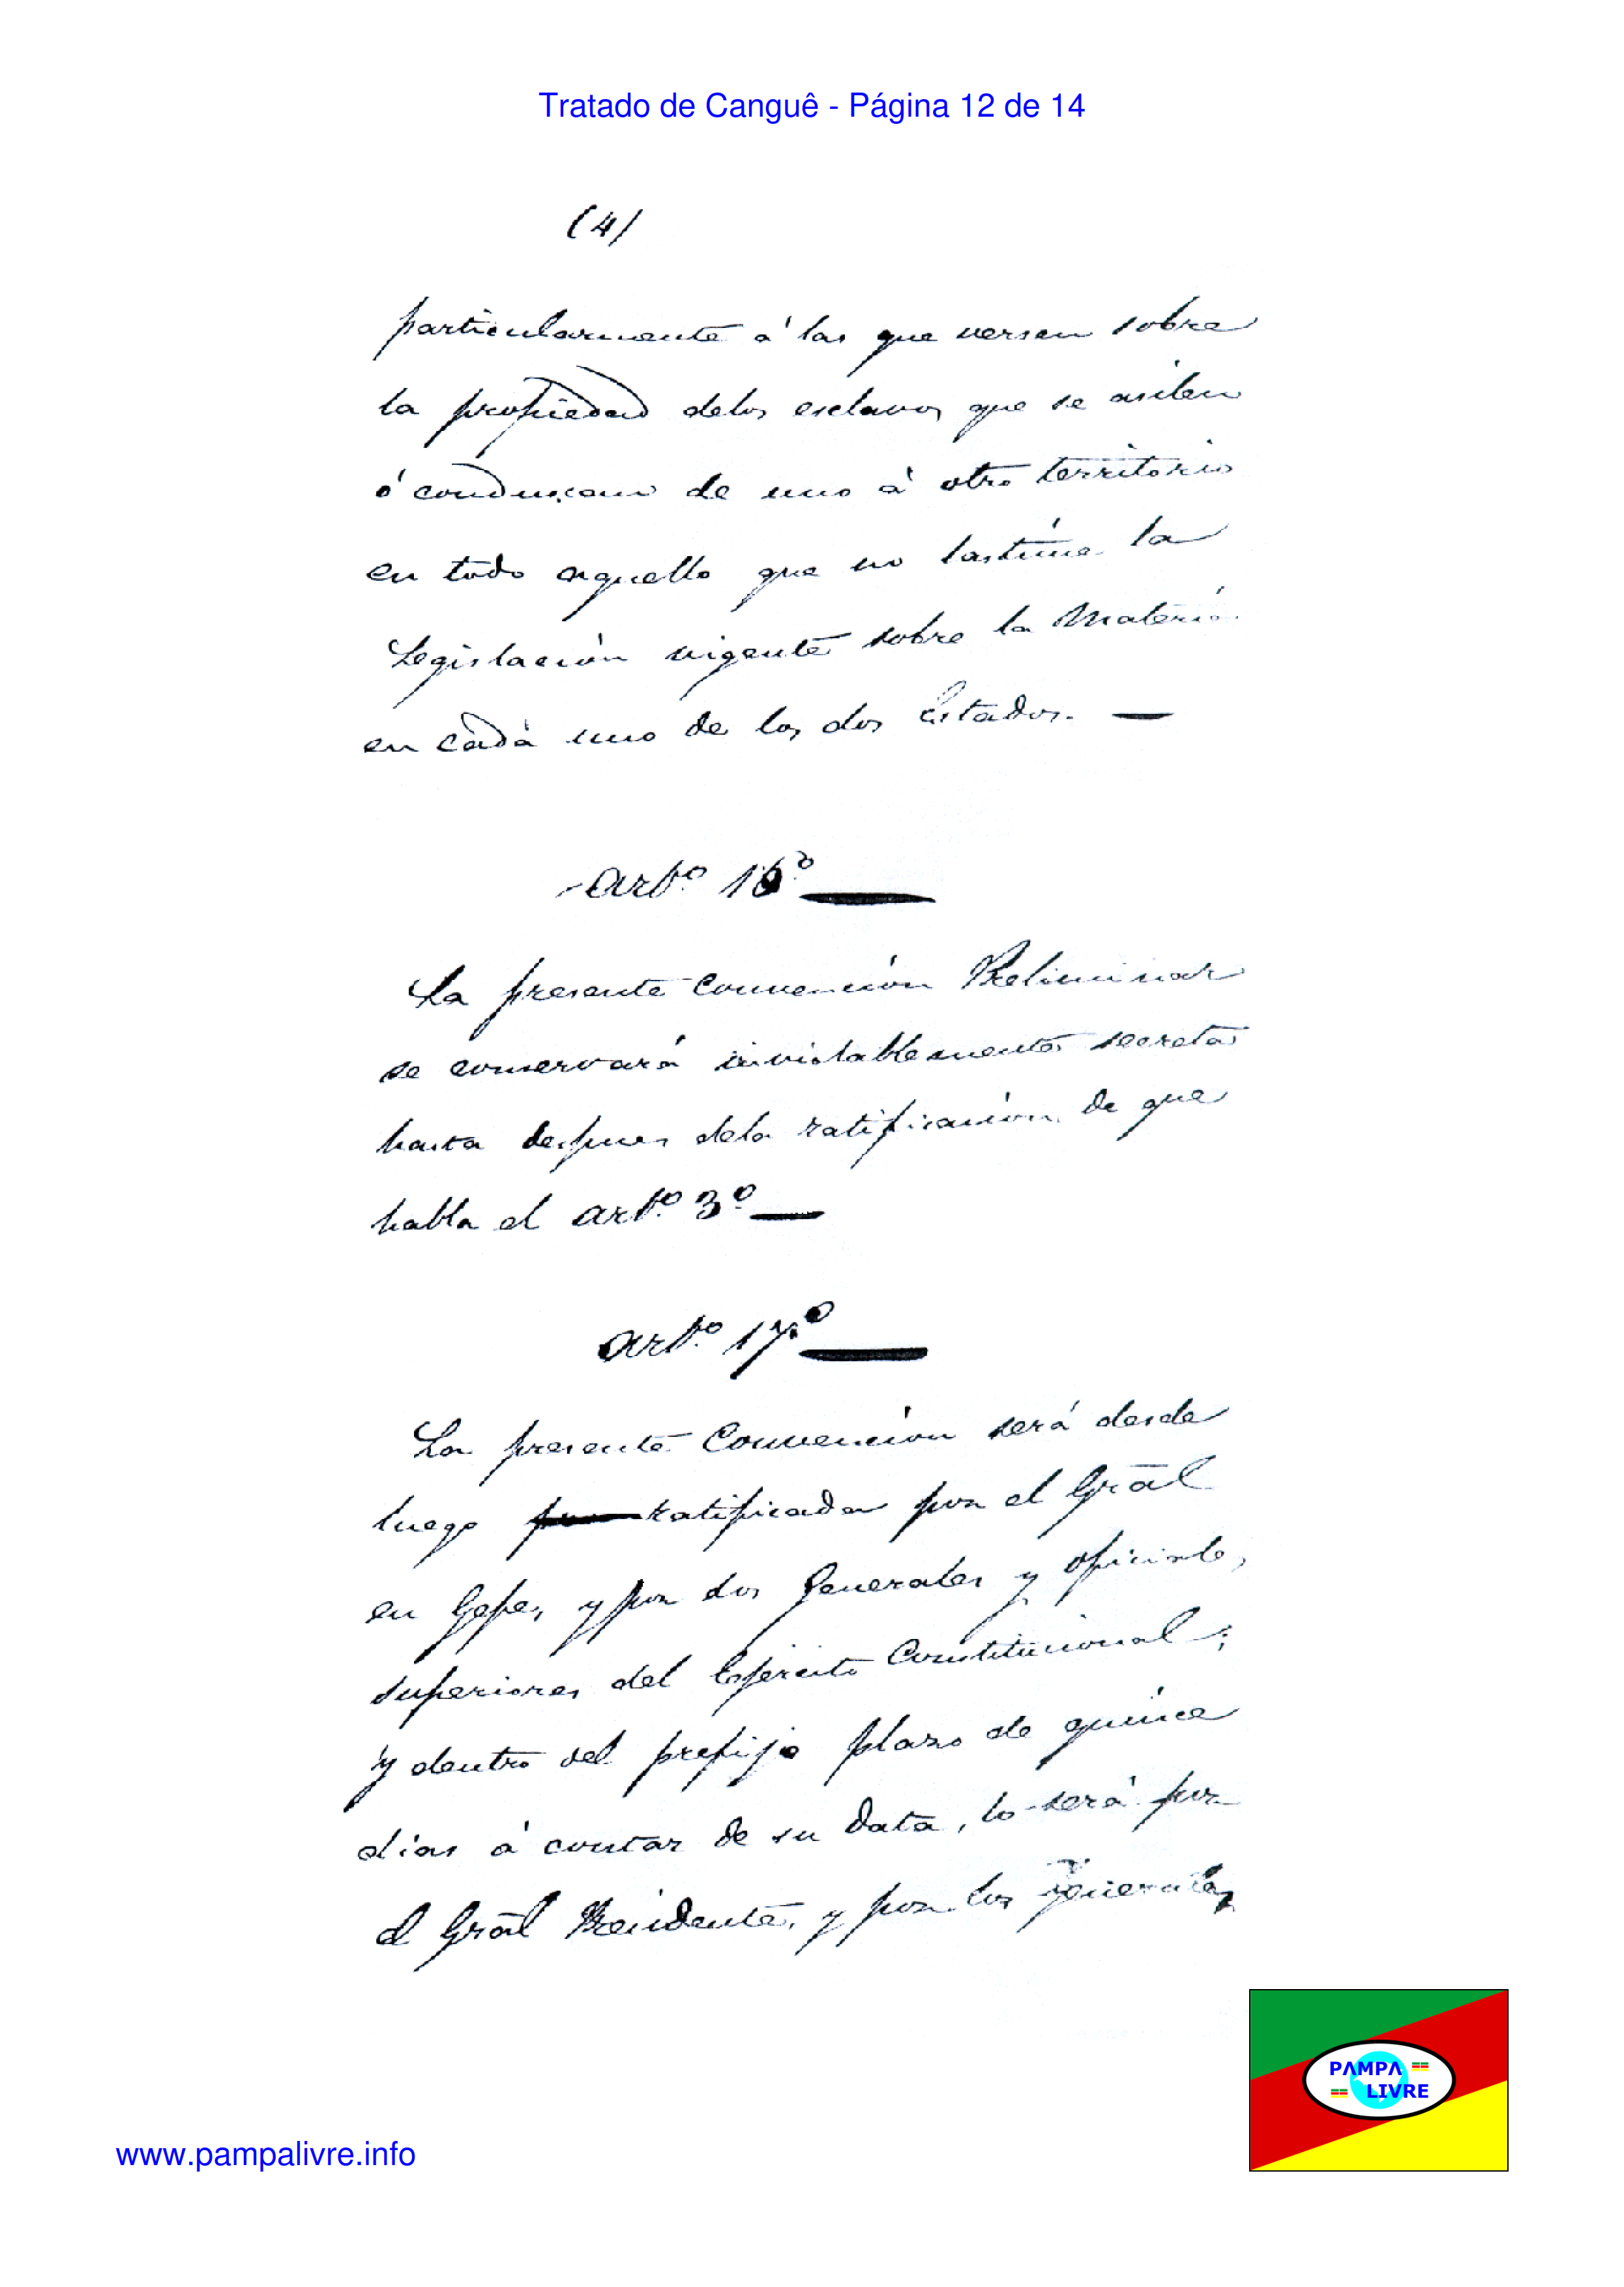 Tratado de Canguê - Página 12 de 14
(4)
particularmente á las que versen sobre
la propiedad delos esclavos que se asilen
ó conduzcan de uno á otro territorio
en todo aquello que no lastime la
Legislación vigente sobre la Materia
en cada uno de los dos Estados. —
Artº 16º —
La presente Convención Preliminar
se conservará inviolablemente secreta
hasta despues dela ratificación de que
habla el artº 3º —
artº 17º —
La presente Convención será desde
luego ratificada por el Grāl
en Gefe, y por dos Generales y oficiales
superiores del Ejército Constitucional;
y dentro del prefijo plazo de quince
días á contar de su data, lo será por
el Grāl Presidente, y por los Generales
PAMPA
LIVRE
www.pampalivre.info